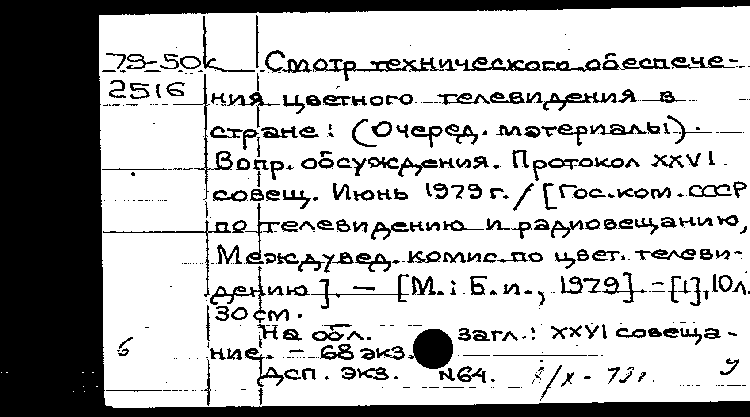 79-50к Смотр технического обеспече-
2516 ния цветного телевидения в
стране: (Очеред. материалы).
Вопр. обсуждения. Протокол XXVI
совещ. Июнь 1979 г. / [Гос. ком. СССР
по телевидению и радиовещанию,
Междувед. комис. по цвет. телеви-
дению]. — [М.: Б. и., 1979]. - [1], 10 л.
30 см.
На обл. загл.: XXVI совеща-
6 ние. - 68 экз.
Дсп. экз. N64.